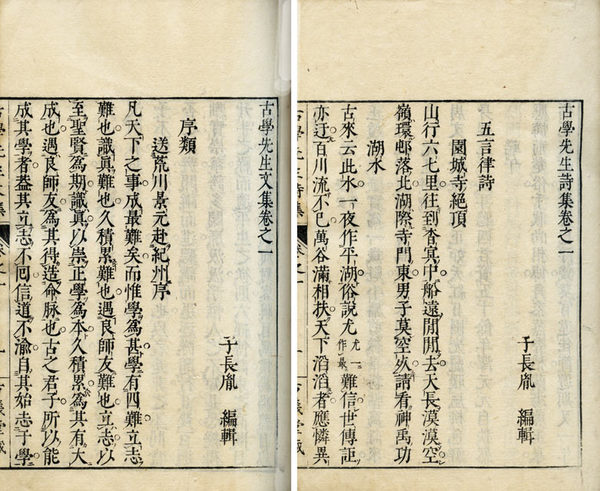 古學先生詩集卷之一
子長胤 編輯
五言律詩
園城寺絶頂
山行六七里往到杳冥中船遠閒閒去天長漠漠空
嶺環邨落北湖際寺門東男子莫空死請看神禹功
湖水
古來云此水一夜作平湖俗說尤尤一作最難信世傳詎
亦迂百川流不已萬谷滿相扶天下滔滔者應憐異
古學先生文集卷之一
子長胤 編輯
序類
送荒川景元赴紀州序
凡天下之事成最難矣而惟學爲甚學有四難立志
難也識眞難也久積累難也遇良師友難也立志以
至聖賢爲期識眞以崇正學爲本久積累爲其有大
成也遇良師友爲其得造命脉也古之君子所以能
成其學者葢其立志不囘信道不渝自其始志于學